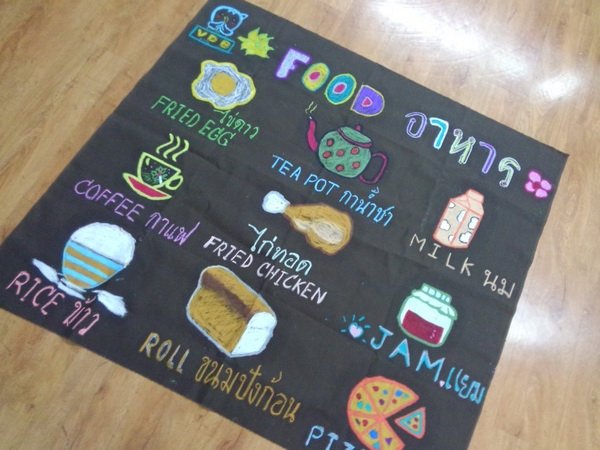 VBB
FOOD อาหาร
ไข่ดาว
FRIED EGG
TEA POT กาน้ำชา
COFFEE กาแฟ
MILK นม
ไก่ทอด
FRIED CHICKEN
RICE ข้าว
JAM. แยม
ROLL ขนมปังก้อน